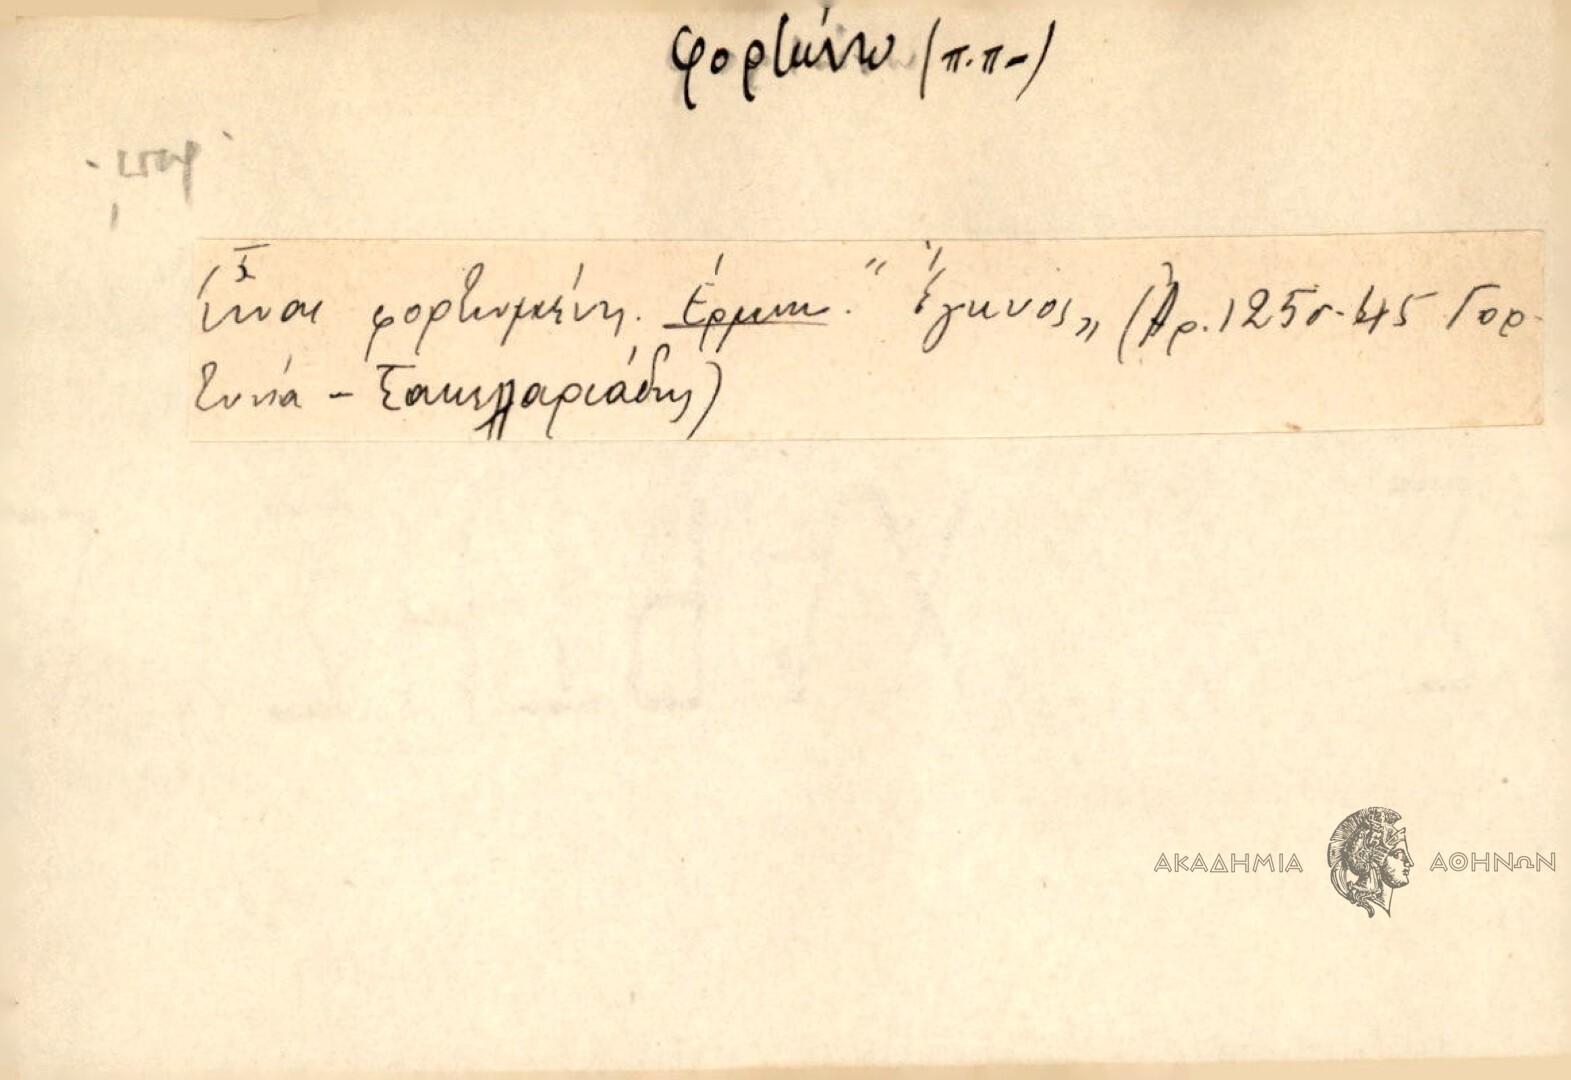 φορτώνω (π.π-)
Εἶναι φορτωμένη. Ἑρμην. "Ἔγκυος" (Ἀρ. 125 σ. 45 Γορ-
τυνία - Σακελλαριάδης)
ΑΚΑΔΗΜΙΑ ΑΘΗΝΩΝ